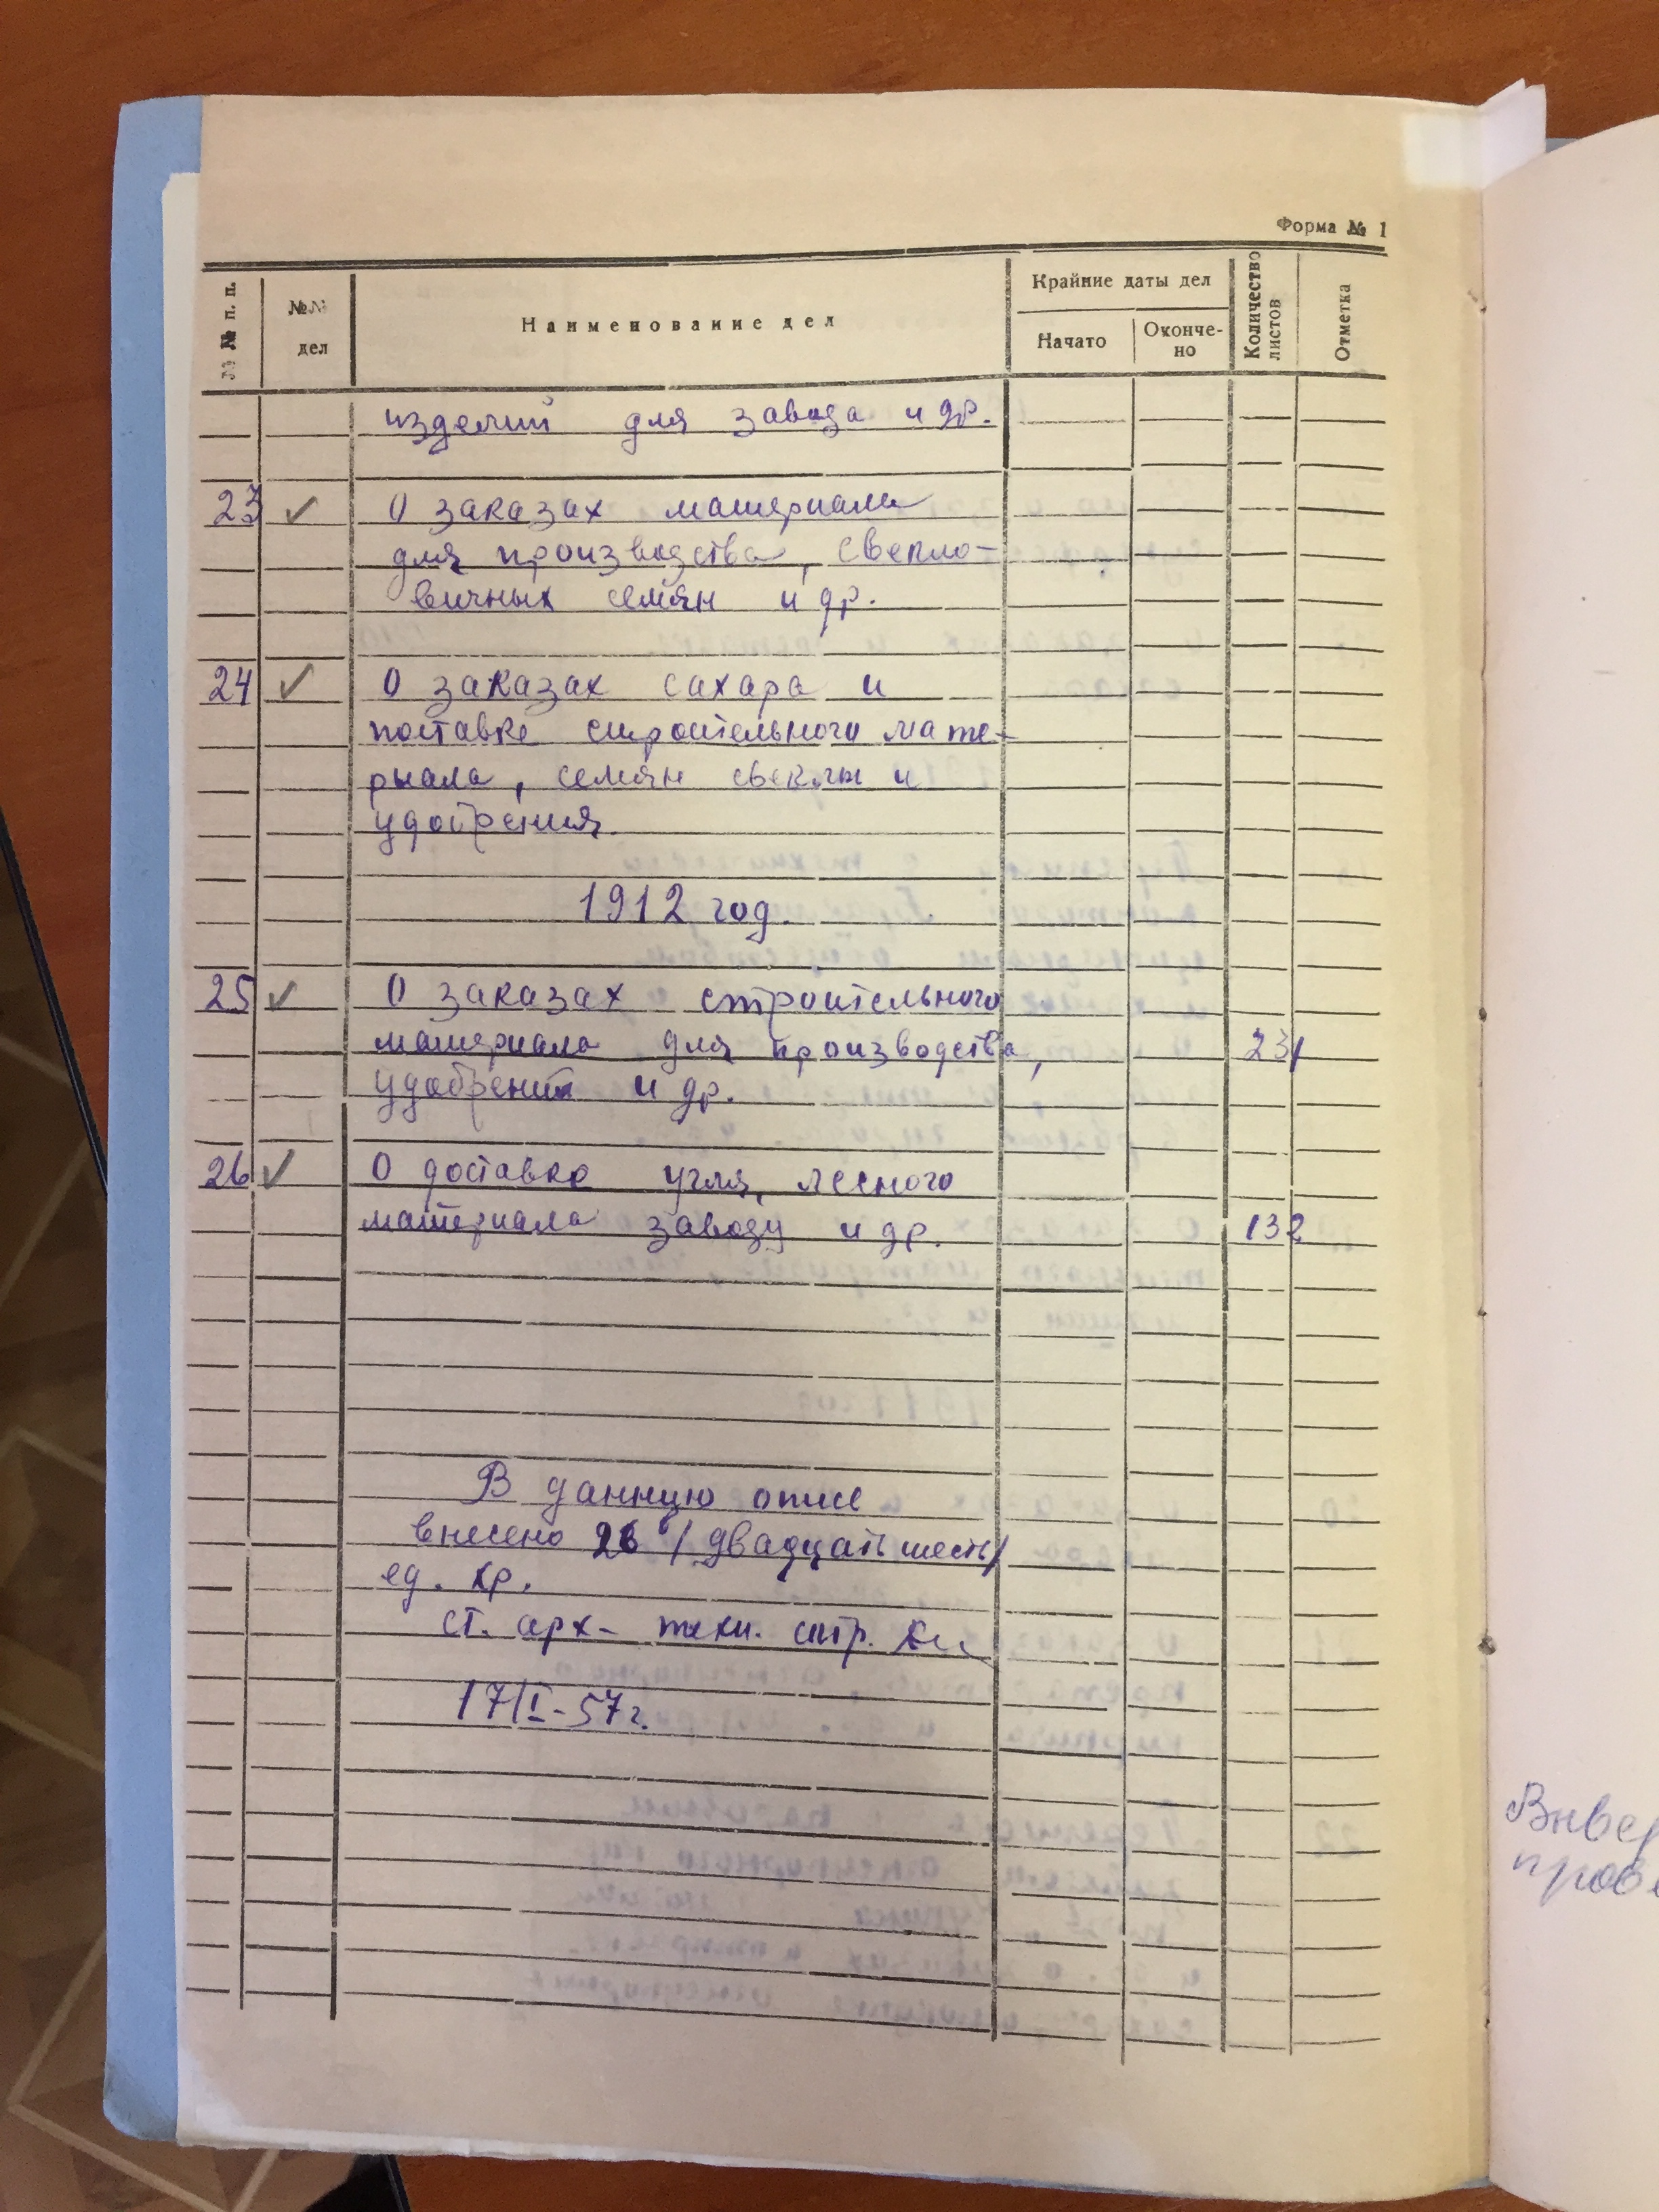 Форма № 1
№ № п. п.
№№ дел
Наименование дел
Крайние даты дел
Начато
Окончено
Количество листов
Отметка
изделий для завода и др.
23 ✓ О заказах материала
для производства, свекло-
вичных семян и др.
24 ✓ О заказах сахара и
поставке строительного мате-
рыала, семян свеклы и
удобрения.
1912 год.
25 ✓ О заказах строительного
материала для производства, 231
удобрений и др.
26 ✓ О доставке угля, лесного
материала заводу и др. 132
В данную описе
внесено 26 /двадцать шесть/
ед. хр.
ст. арх- техн. стр.
17/I-57 г.